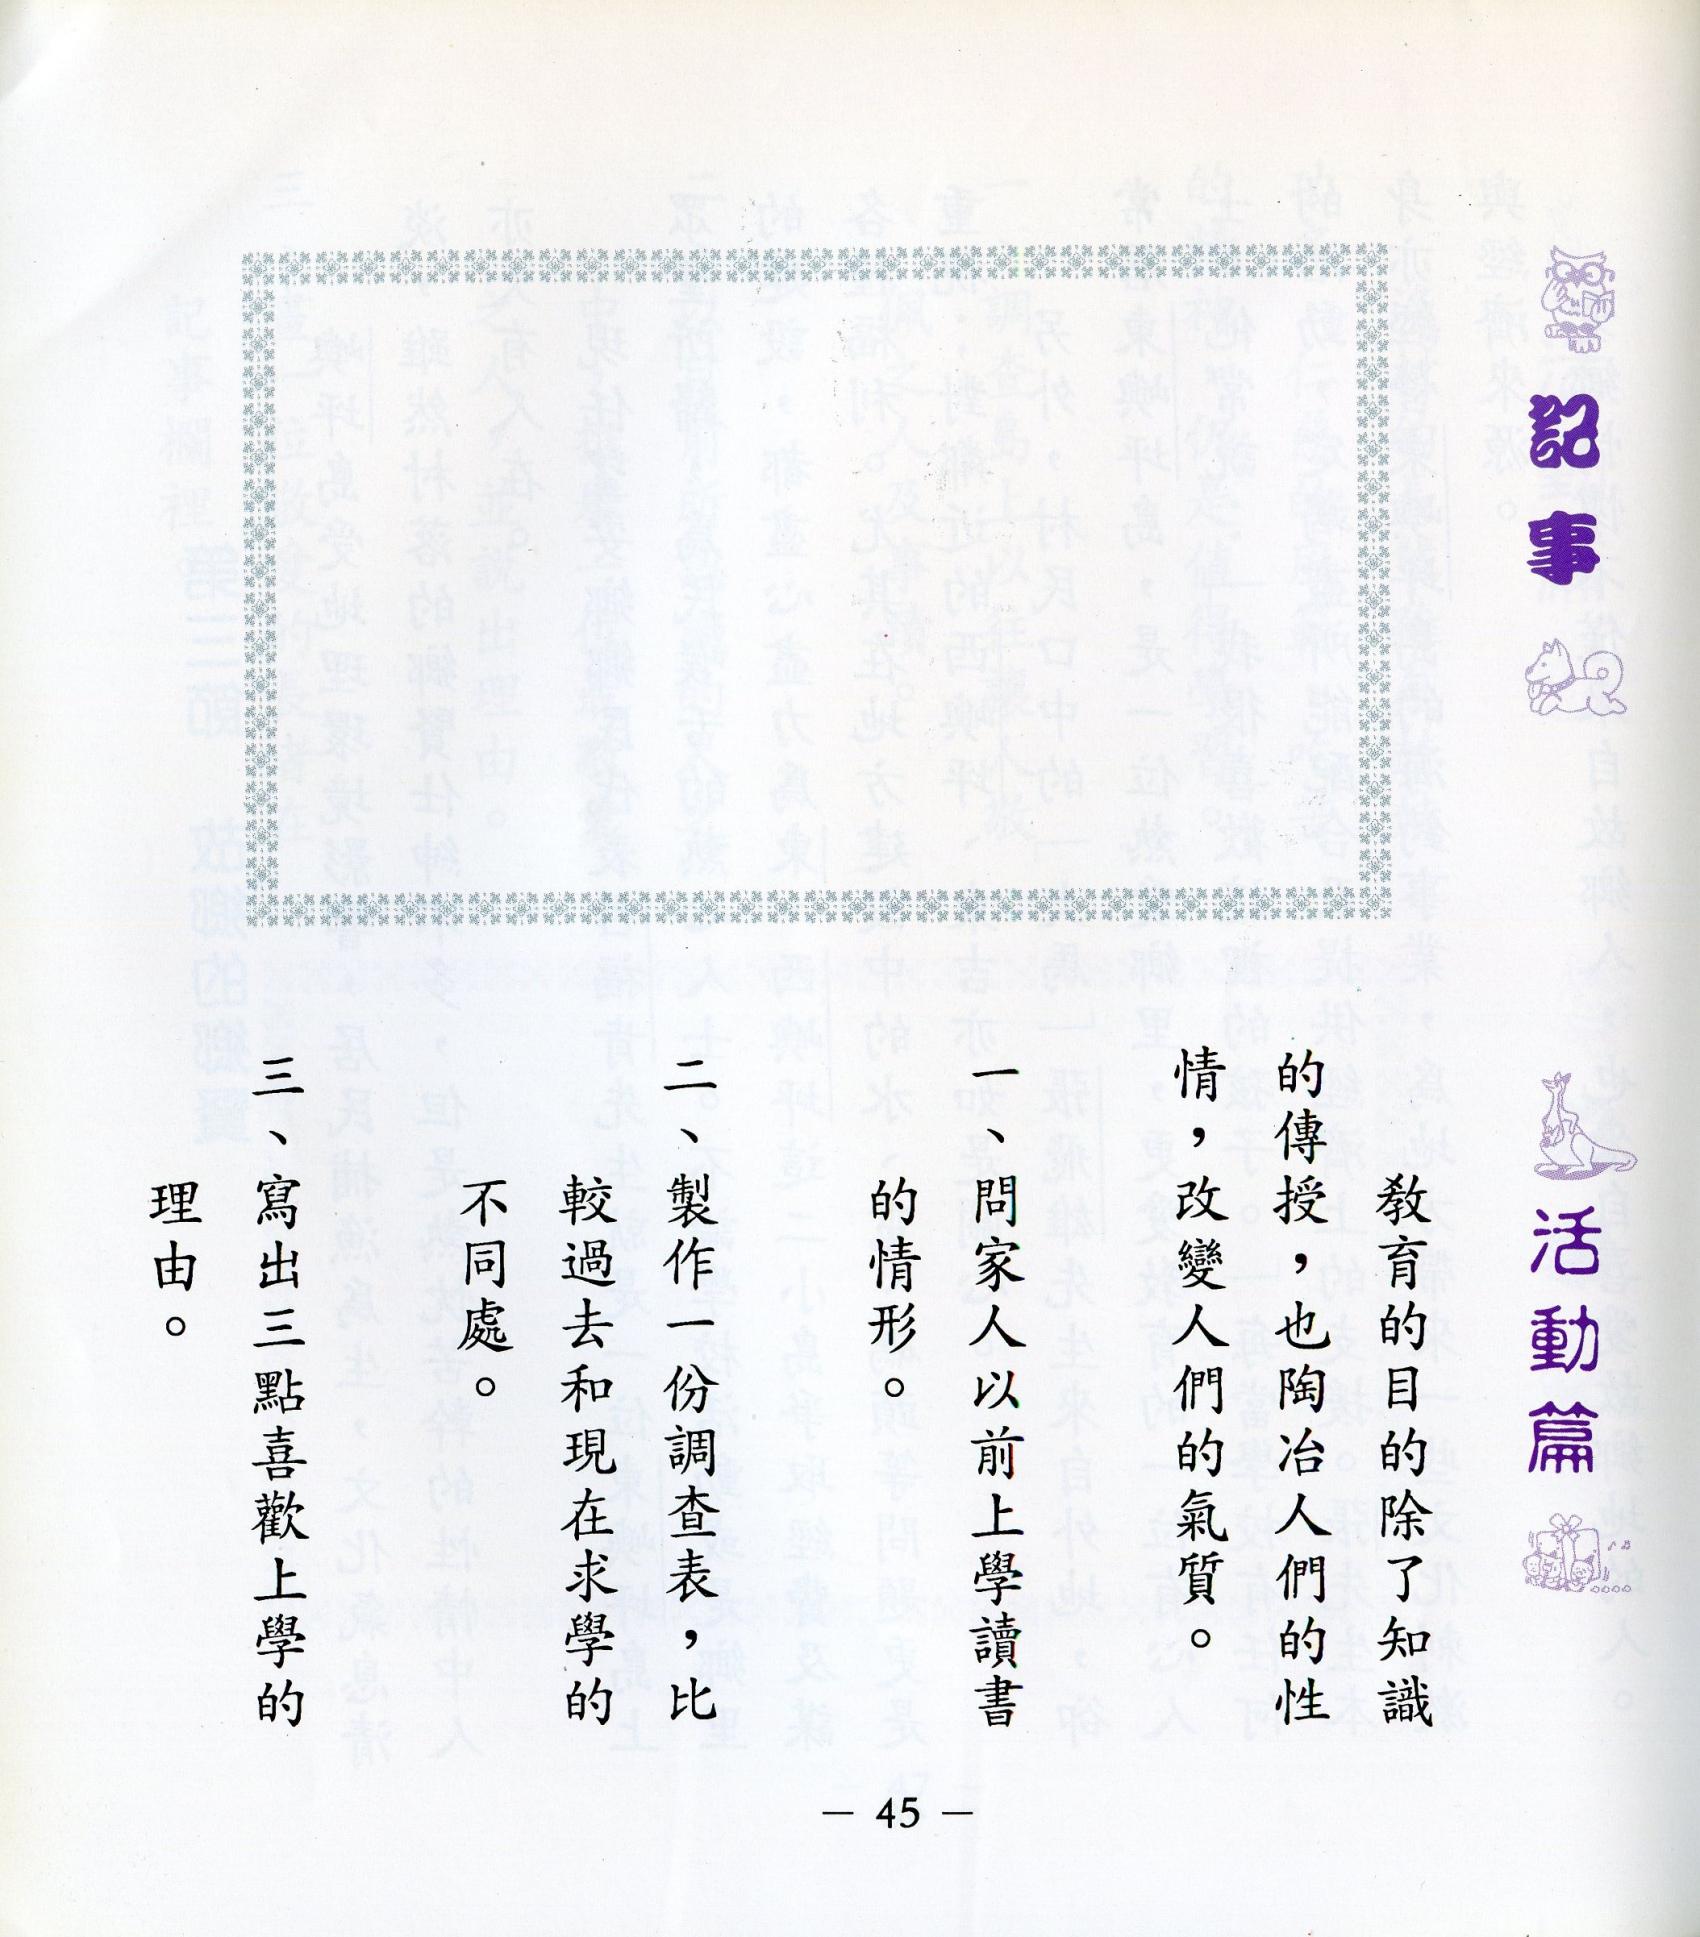 記事
活動篇
教育的目的除了知識
的傳授，也陶冶人們的性
情，改變人們的氣質。
一、問家人以前上學讀書
的情形。
二、製作一份調查表，比
較過去和現在求學的
不同處。
三、寫出三點喜歡上學的
理由。
— 45 —